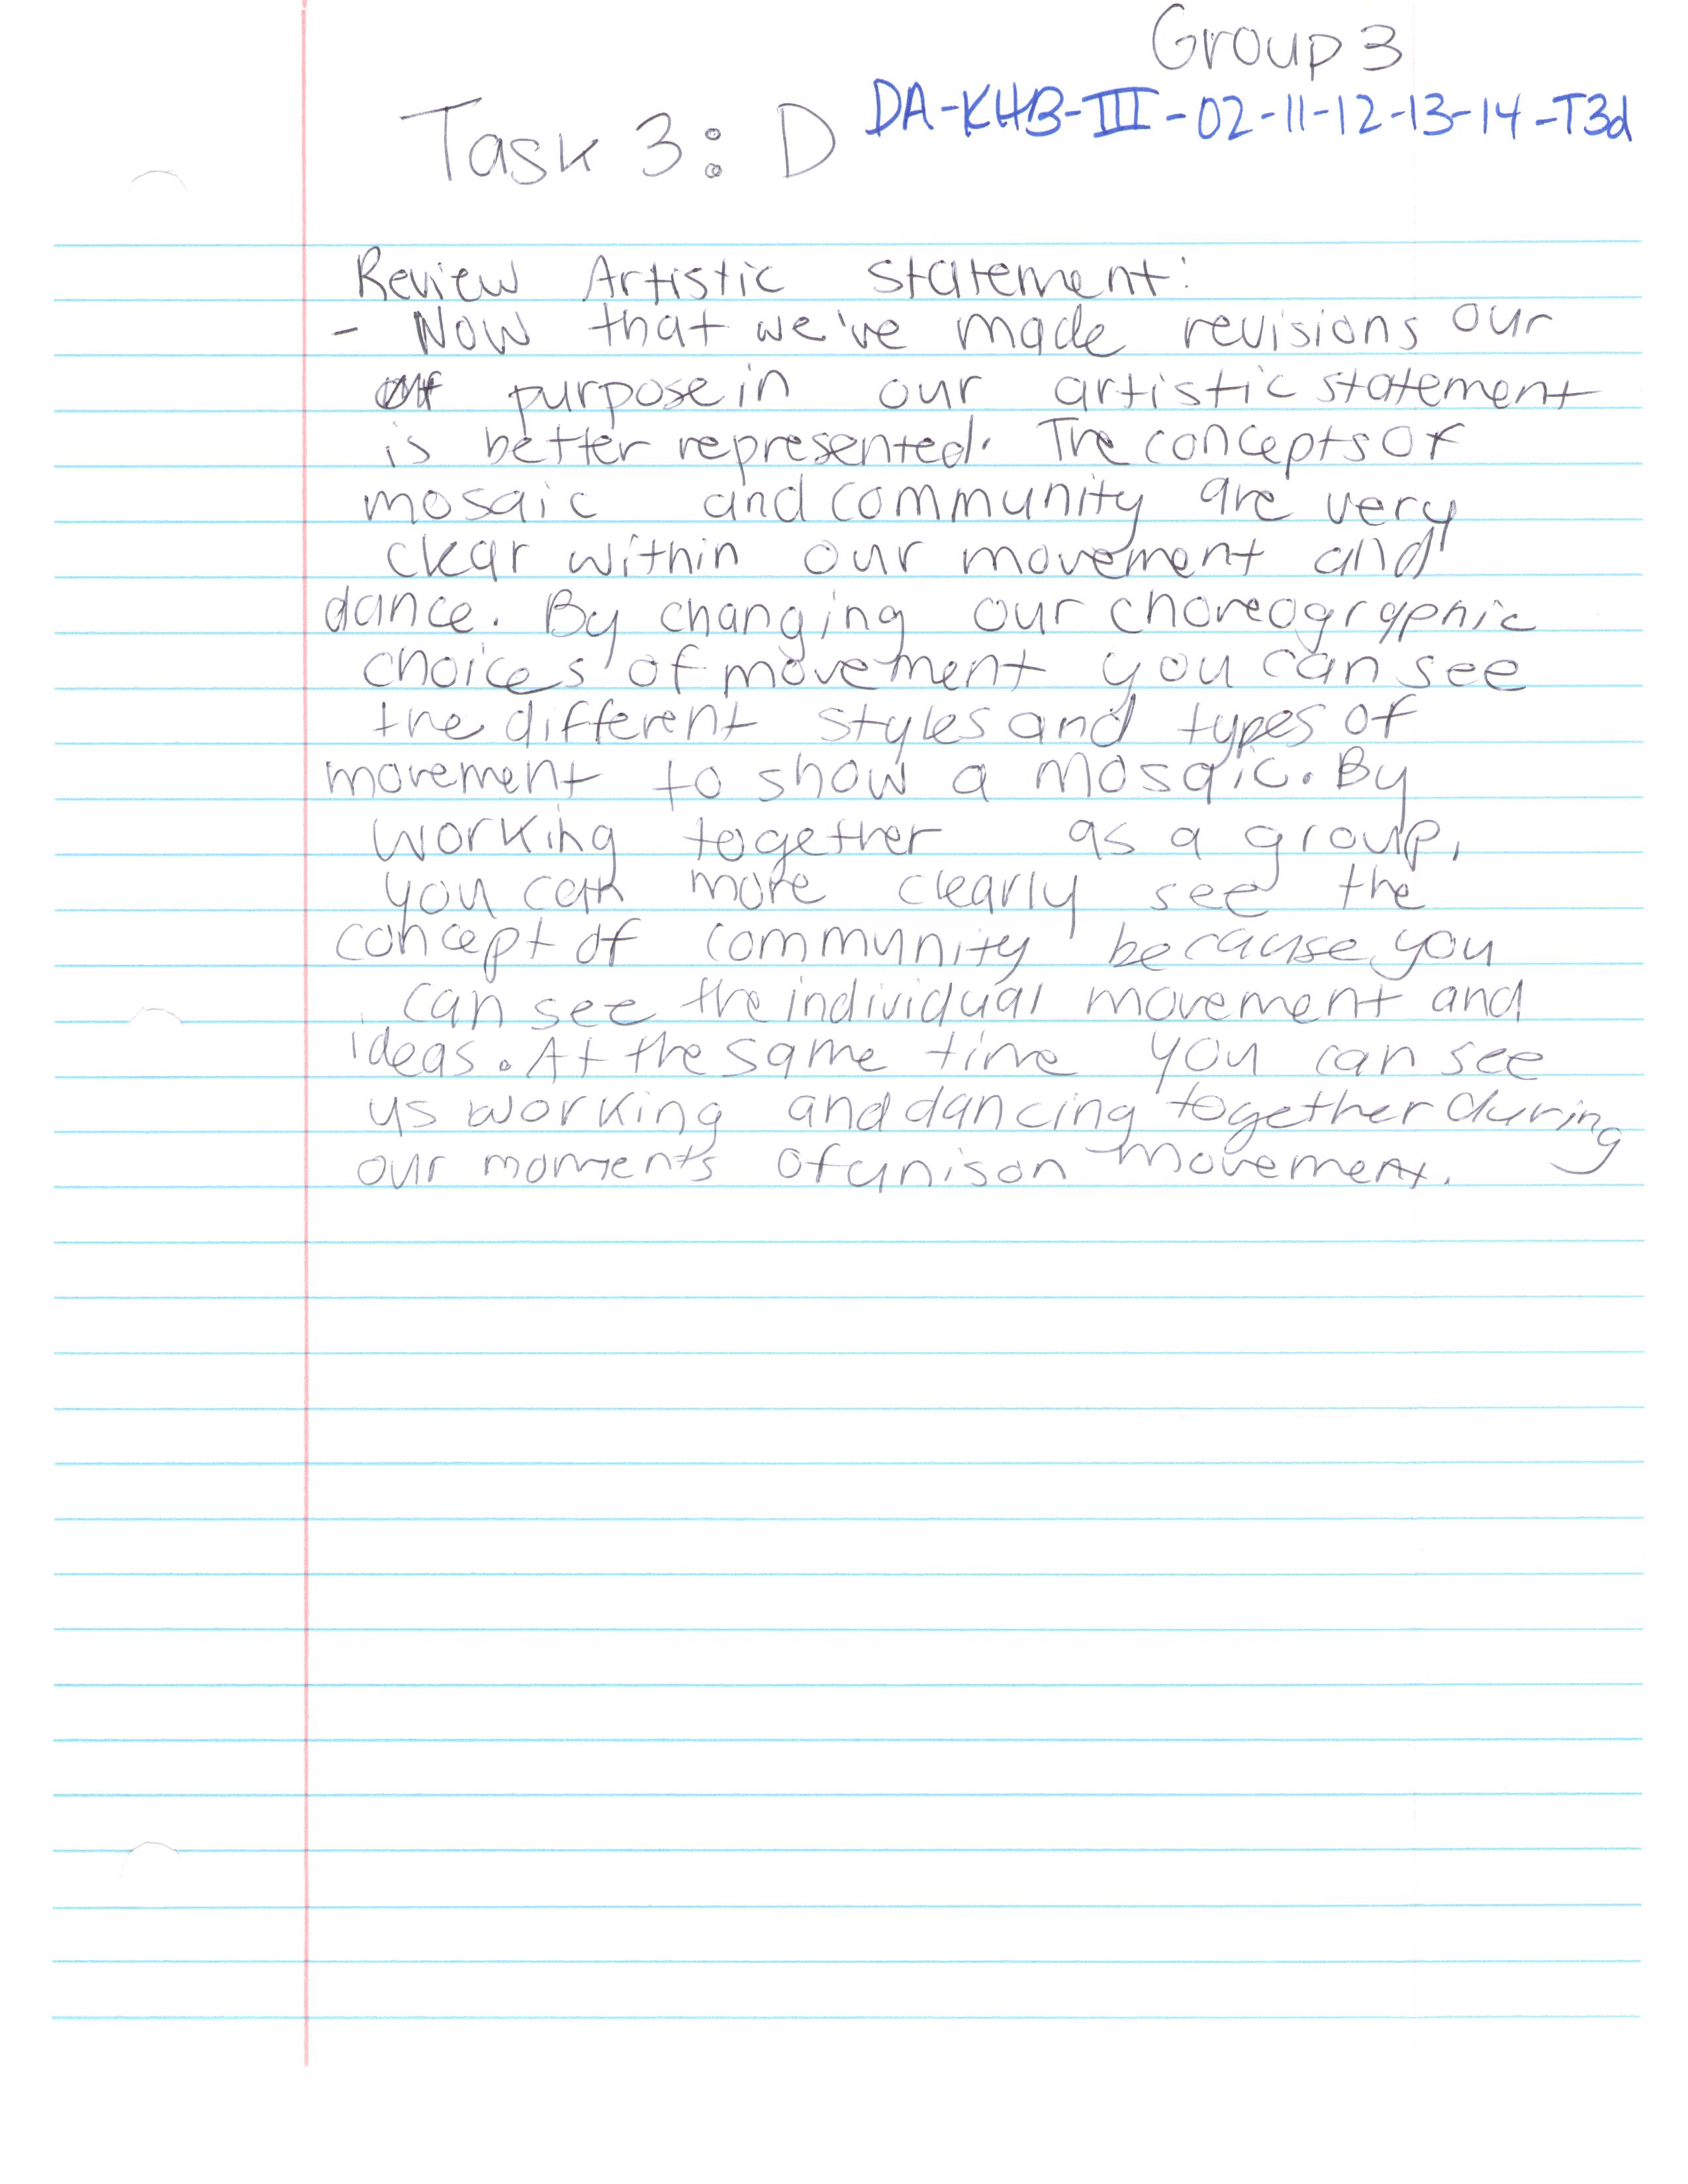 Group 3
DA-KHB-III-02-11-12-13-14-T3d
Task 3: D
Review Artistic statement:
- Now that we've made revisions our
purpose in our artistic statement
is better represented. The concepts of
mosaic and community are very
clear within our movement and
dance. By changing our choreographic
choices of movement you can see
the different styles and types of
movement to show a mosaic. By
working together as a group,
you can more clearly see the
concept of community because you
can see the individual movement and
ideas. At the same time you can see
us working and dancing together during
our moments of unison movement.